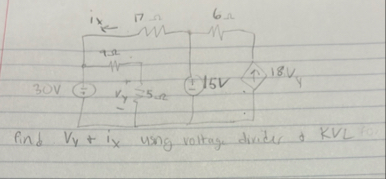 ix 17Ω 6Ω
9Ω
30V Vy 5Ω 15V 18Vy
Find Vy + ix using voltage divider & KVL